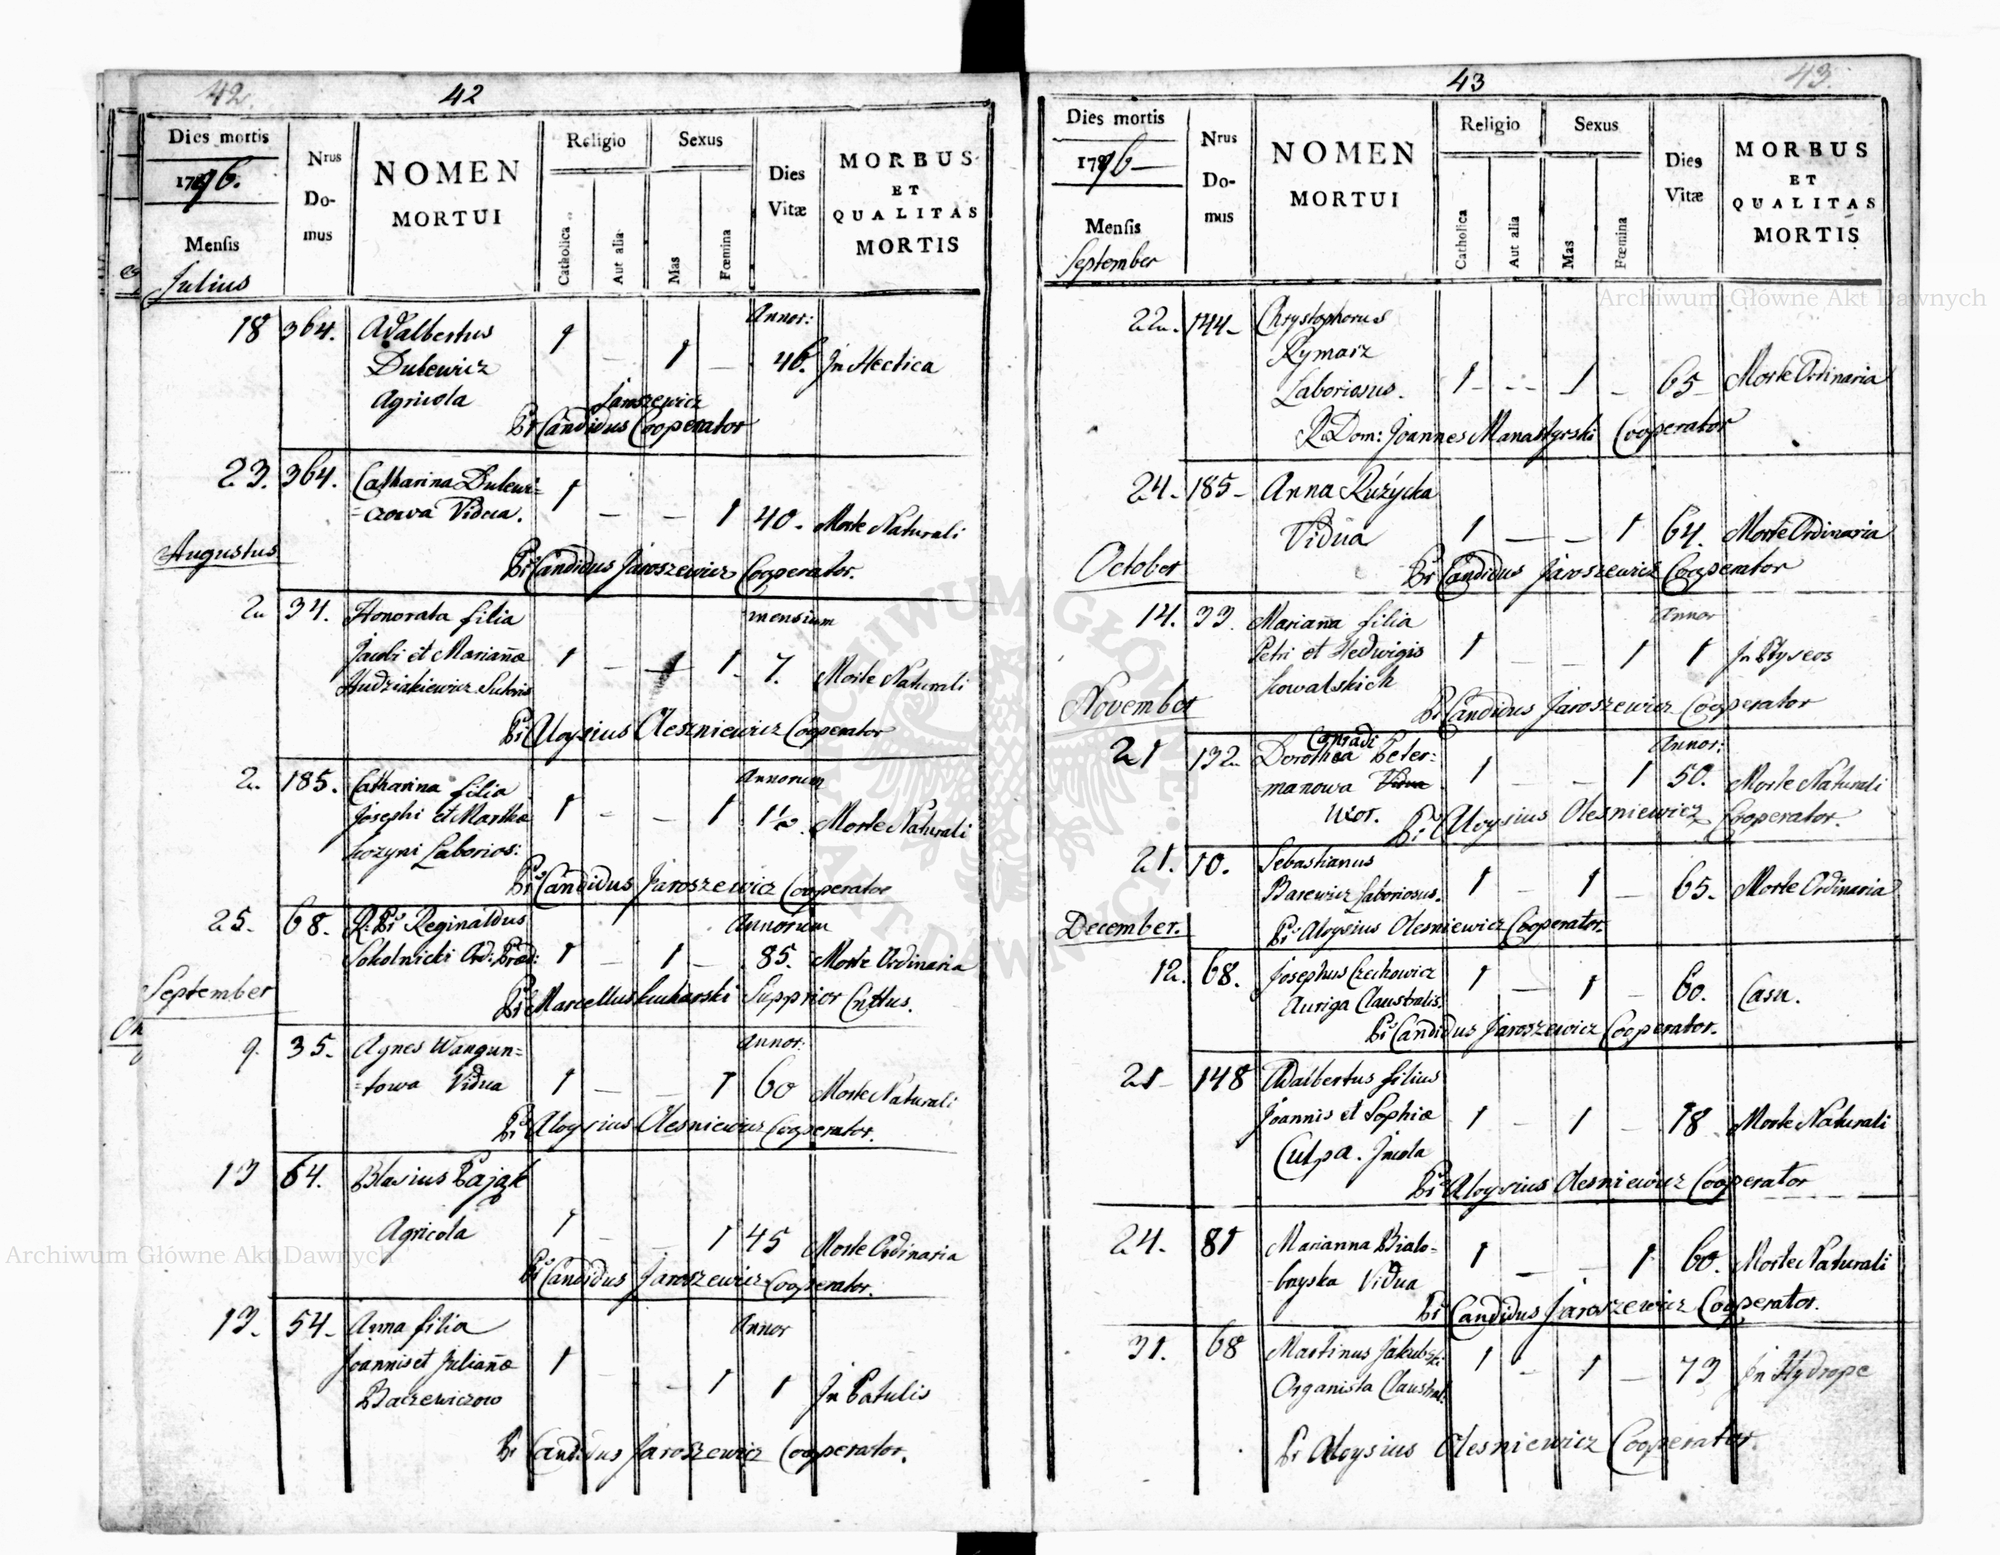 42. 42
Dies mortis
1796.
Mensis
Julius
Nrus Domus
NOMEN
MORTUI
Religio
Catholica
Aut alia
Sexus
Mas
Fœmina
Dies
Vitæ
MORBUS
ET
QUALITAS
MORTIS
Annor:
18 364. Adalbertus
Dulewicz 1 – 1 – 46. Jn Hectica
Agricola
Jaroszewicz
Pr Candidus Cooperator
23. 364. Catharina Dulewi=
=czowa Vidua. 1 – – 1 40. Morte Naturali
Augustus
Pr Candidus Jaroszewicz Cooperator.
2. 34. Honorata filia mensium
Jacobi et Mariañæ 1 – 1 7. Morte Naturali
Hudziakiewicz Sutoris
Pr Aloysius Olesniewicz Cooperator
2. 185. Catharina filia Annorum
Josephi et Marthæ 1 – – 1 1½. Morte Naturali
Kozyni Laborios:
Pr Candidus Jaroszewicz Cooperator
25. 68. R: Pr Reginaldus Annorum
Sokolnicki Ord: Præd: 1 – 1 – 85. Morte Ordinaria
September
Pr Marcellus Kucharski Supprior Cnttus.
9. 35. Agnes Wangun= Annor:
=towa Vidua 1 – – 1 60 Morte Naturali
Pr Aloysius Olesniewicz Cooperator.
13 64. Blasius Pająk
Agricola 1 – – 1 45 Morte Ordinaria
Pr Candidus Jaroszewicz Cooperator.
13. 54. Anna filia Annor
Joannis et Juliañæ 1 – – 1 1 Jn Patulis
Baczewiczow
Pr Candidus Jaroszewicz Cooperator.
43 43.
Dies mortis
1796
Mensis
September
Nrus Domus
NOMEN
MORTUI
Religio
Catholica
Aut alia
Sexus
Mas
Fœmina
Dies
Vitæ
MORBUS
ET
QUALITAS
MORTIS
22. 144. Chrystophorus
Rymarz
Laboriosus. 1 – – 1 – 65 Morte Ordinaria
R. Dom: Joannes Manastyrski Cooperator
24. 185. Anna Rużycka
Vidua 1 – – 1 64. Morte Ordinaria
October
Pr Candidus Jaroszewicz Cooperator
14. 33. Mariaña filia Annor
Petri et Hedwigis 1 – – 1 1 Jn Ptyseos
Kowalskich
November
Pr Candidus Jaroszewicz Cooperator
Conradi
21 132. Dorothea Peter= Annor:
manowa Vidua 1 – 1 50. Morte Naturali
Uxor. Pr Aloysius Olesniewicz Cooperator.
21. 10. Sebastianus
Barewicz Laboriosus. 1 – 1 – 65. Morte Ordinaria
December.
Pr Aloysius Olesniewicz Cooperator.
12. 68. Josephus Czechowicz
Auriga Claustralis. 1 – 1 – 60. Casu.
Pr Candidus Jaroszewicz Cooperator.
21 148 Adalbertus filius
Joannis et Sophiæ 1 – 1 – 18 Morte Naturali
Culpa. Jncola
Pr Aloysius Olesniewicz Cooperator
24. 81 Marianna Biało=
=brzyska Vidua 1 – – 1 60. Morte Naturali
Pr Candidus Jaroszewicz Cooperator.
31. 68 Martinus Jakubski
Organista Claustral: 1 – 1 – 73 Jn Hydrope
Pr Aloysius Olesniewicz Cooperator.
Archiwum Główne Akt Dawnych
Archiwum Główne Akt Dawnych
ARCHIWUM GŁÓWNE AKT DAWNYCH